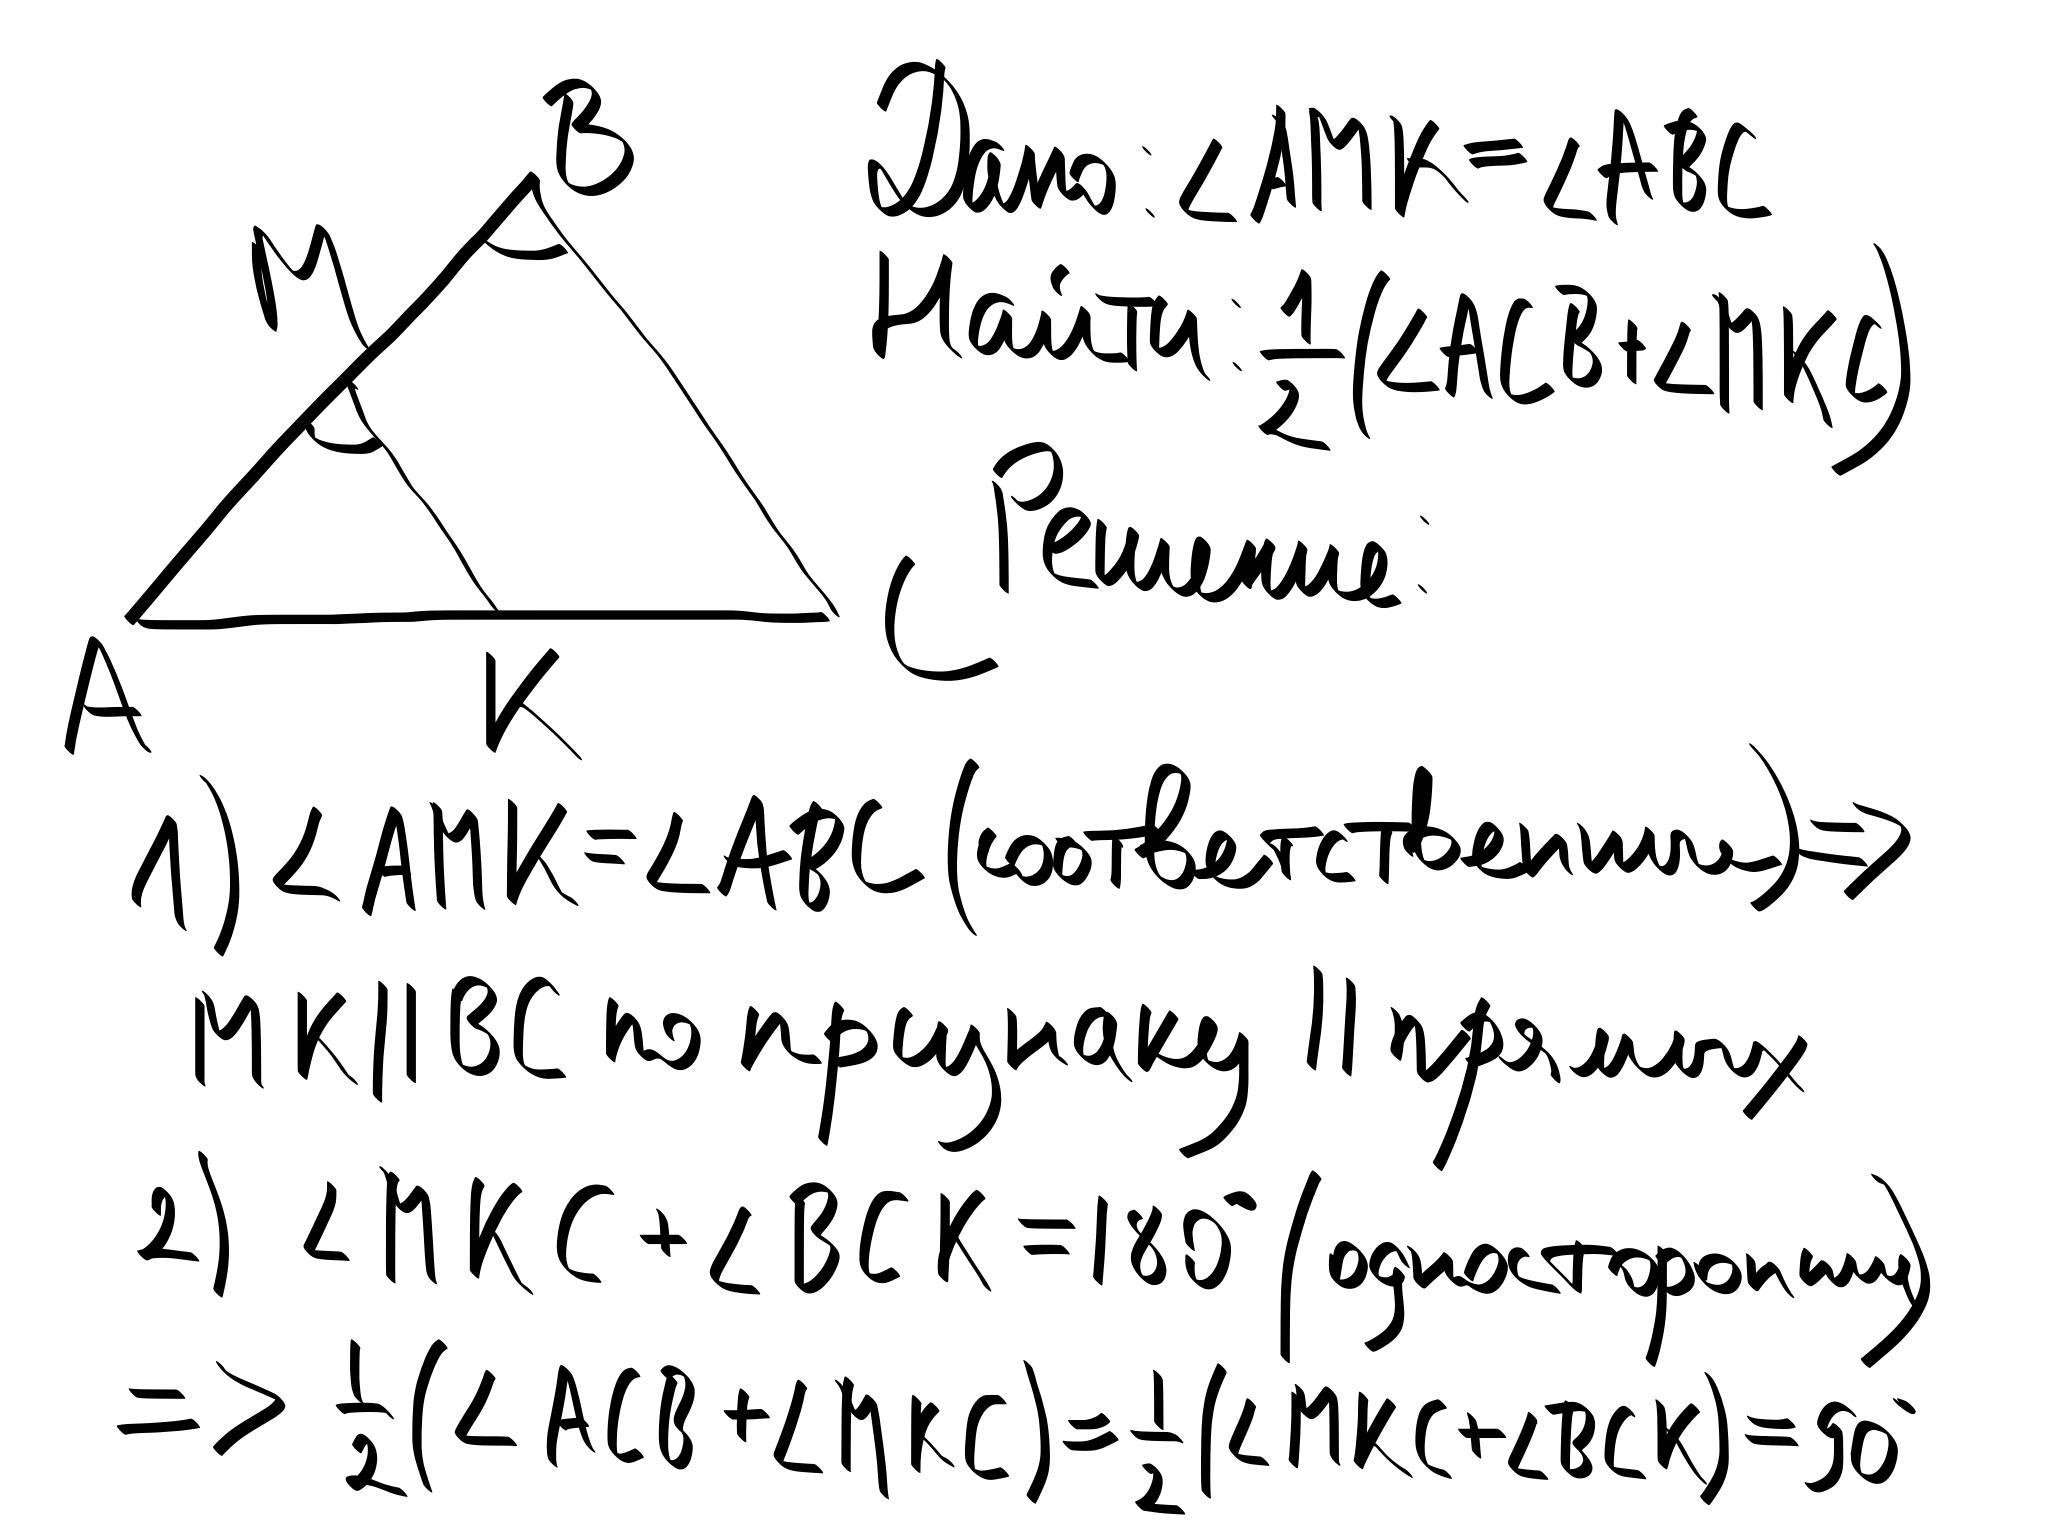 B
M
A
K
C
Дано: ∠AMK=∠ABC
Найти: 1/2(∠ACB+∠MKC)
Решение:
1) ∠AMK=∠ABC (соответственные) ⇒
MK||BC по признаку || прямых
2) ∠MKC+∠BCK=180° (односторонние)
=> 1/2(∠ACB+∠MKC)=1/2(∠MKC+∠BCK)=90°